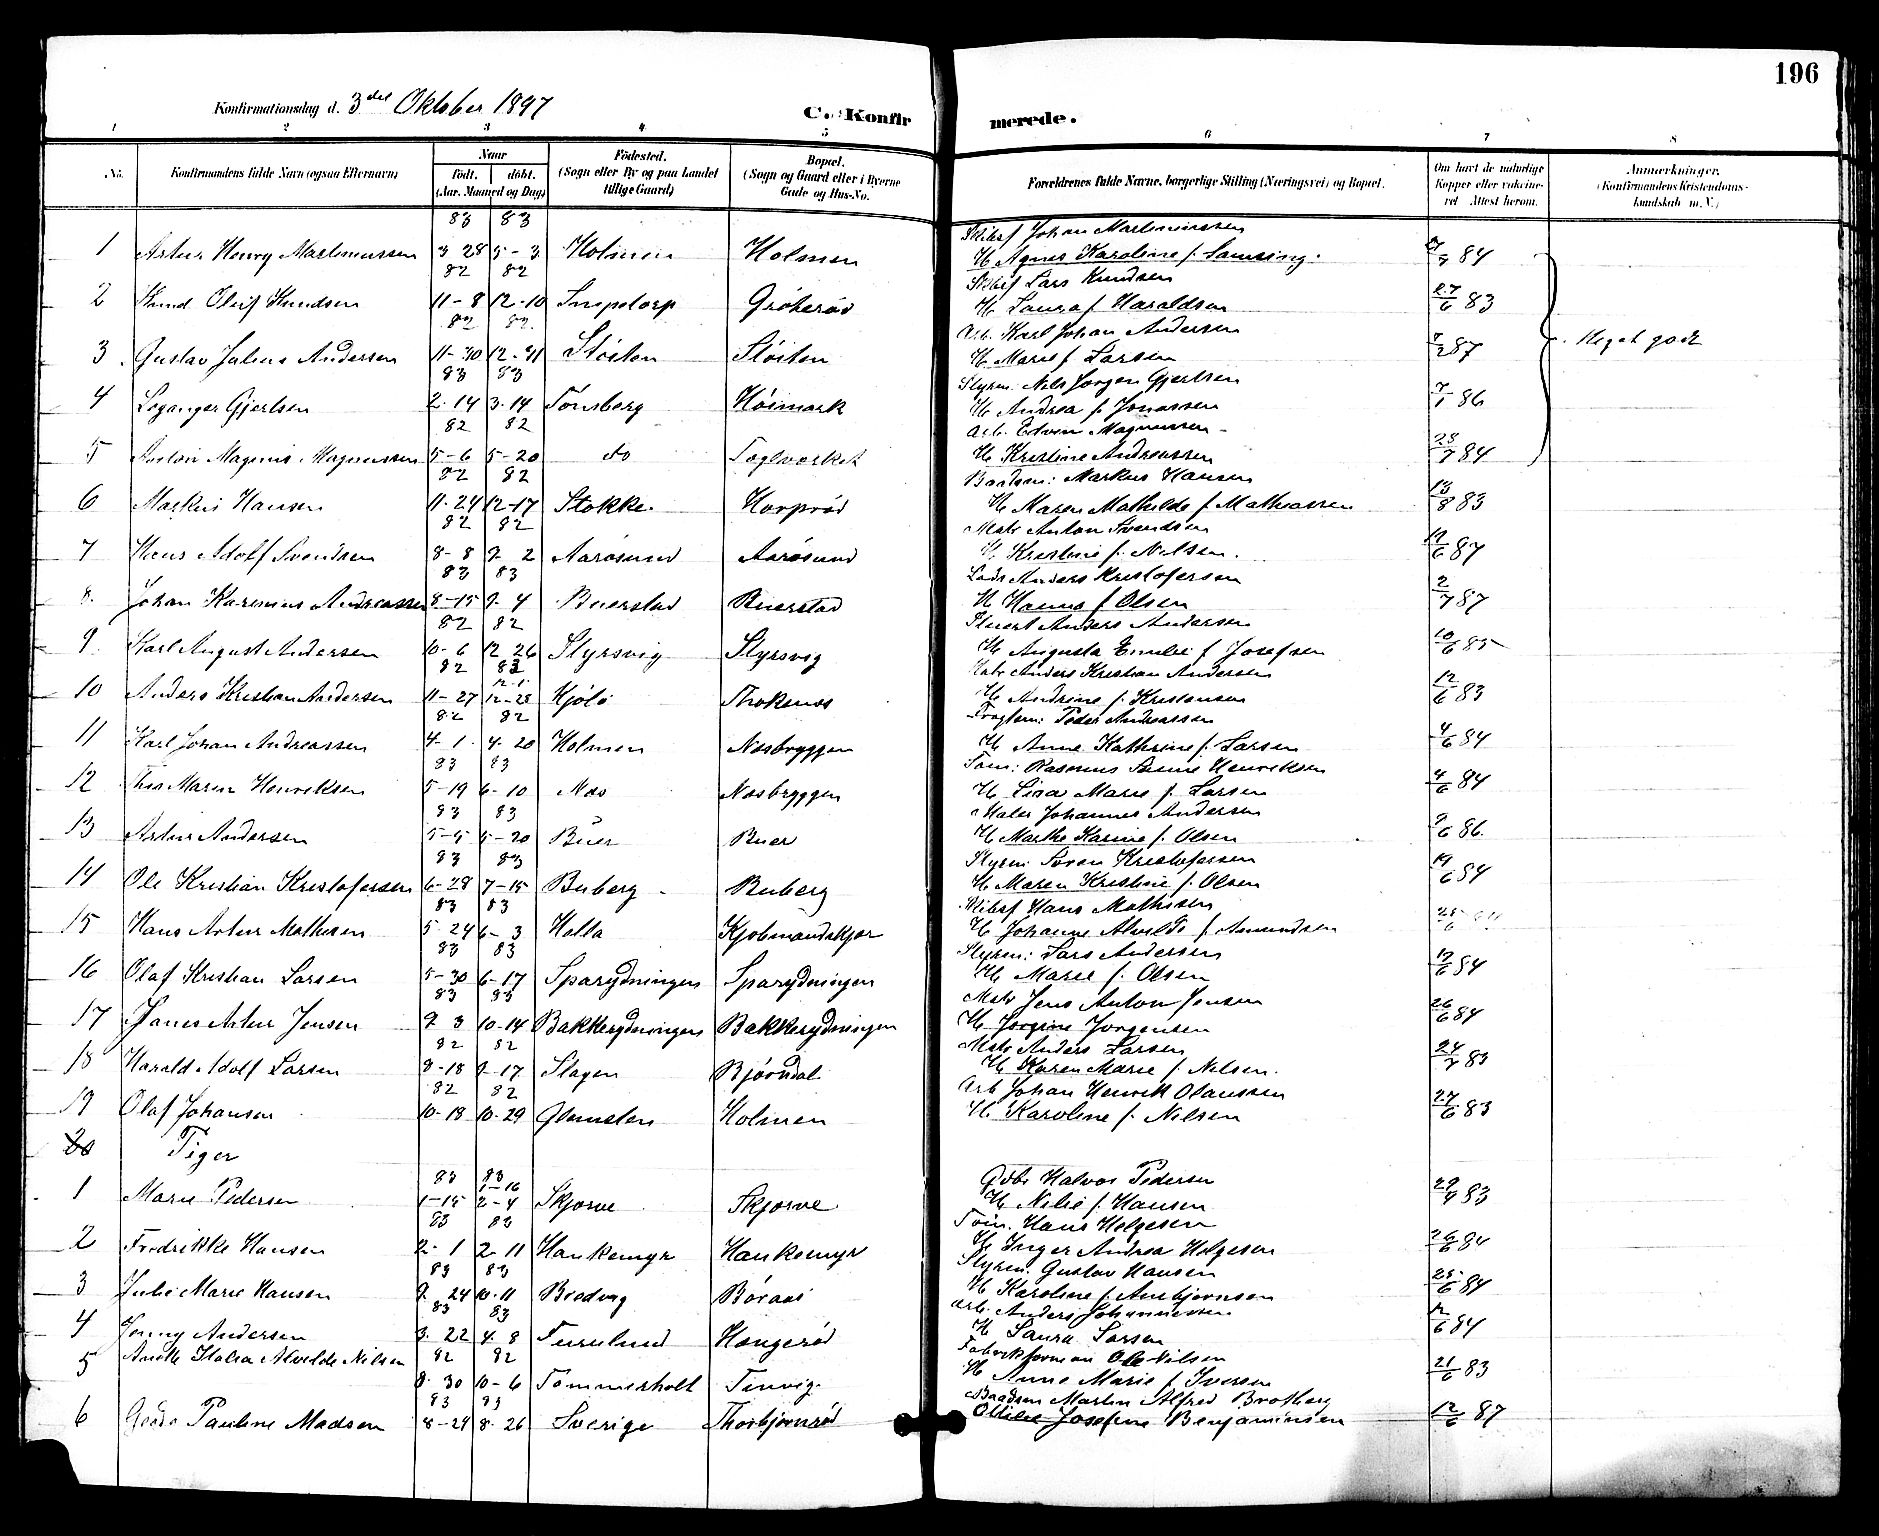 196
Konfirmationsdag d. 3det Oktober 1897
C. Konfirmerede.
1 2 3 4 5 6 7 8
No. Konfirmandens fulde Navn (ogsaa Efternavn) Naar født. døbt. (Aar, Maaned og Dag) Fødested. (Sogn eller By og paa Landet tillige Gaard) Bopæl. (Sogn og Gaard eller i Byerne Gade og Hus-No. Forældrenes fulde Navne, borgerlige Stilling (Næringsvei) og Bopæl. Om havt de naturlige Kopper eller vakcineret Attest herom. Anmærkninger. (Konfirmandens Kristendomskundskab m. V.)
83 83 Skibsf Johan Martiniussen
1 Artur Henry Martinussen 3 28 5 - 3 Holmen Holmen H. Agnes Karoline f. Samsing. 84
82 82 Skibsf Lars Knudsen
2 Knud Oluf Knudsen 11 - 8 12 - 10 Snipetorp Gröterød H. Laura f Haraldsen 27/6 83
82 82 Arb. Karl Johan Andersen
3 Gustav Julius Andersen 11 - 30 12 - 31 Stösten Stösten H. Marie f Larsen 87 Meget godt
83 83 Styrm. Nils Jorgen Gjertsen
4 Leganger Gjertsen 2 - 14 3 - 14 Tönsberg Höimark H. Andrea f. Jonassen 7/1 86
82 82 Arb. Edvin Magnussen
5 Magnus Magnussen 5 - 6 5 - 20 do Teglverket H. Kristine Andreassen 84
82 82 Baadsm: Markus Hansen
6 Markus Hansen 11 - 24 12 - 17 Stokke Horprød H. Maren Mathilde f Mathiassen 13/8 83
82 82 Matr Anton Svendsen
7 Hans Adolf Svendsen 8 - 8 9 - 2 Aarøsund Aarøsund H. Kristine f. Nilsen. 87
83 83 Lods Anders Kristofersen
8. Johan Karenius Andreassen 8 - 15 9 - 4 Buerstad Buerstad H Hanna f Olsen 2/7 87
82 82 Stuert Anders Andersen
9 Karl August Andersen 10 - 6 12 26 Styrsvig Styrsvig H. Augusta Emilie f Josefsen 10/6 85
82 82 Matr Anders Kristian Andersen
10 Anders Kristian Andersen 11 - 27 12 - 28 Kjölö Thokenes H. Andrine f. Kristensen 12/6 83
82 82 Fragtem: Peder Andreassen
11 Karl Johan Andreassen 4 - 1 4 20 Holmen Næsbryggen H. Anne Kathrine f. Larsen 4/6 84
83 83 Töm: Rasmus Henriksen
12 Henriksen 5 - 19 6 - 10 Næs Næsbryggen H. Lina Marie f. Larsen 4/6 84
83 83 Maler Johannes Andersen
13 Artur Andersen 5 - 5 5 - 20 Buer Buer H. Marthe Karine f. Olsen 86
83 83 Styrm Søren Kristofersen
14 Ole Kristian Kristofersen 6 - 28 7 - 15 Buberg Buberg H. Maren Kristine f. Olsen 19/6 84
83 83 Skibsf Hans Mathisen
15 Hans Artur Mathisen 5 24 6 - 3 Holla Kjøbmandskjær H. Johanne Alvilde f Amundsen
83 83 Styrm: Lars Andersen
16 Olaf Kristian Larsen 5 - 30 6 - 17 Sparydningen Sparydningen H. Marie f. Olsen 84
83 83 Matr Jens Anton Jensen
17 Janes Artur Jensen 9 3 10 - 14 Bakkerydningen Bakkerydningen H. Jorgine Jorgensen 26/6 84
82 82 Matr Anders Larsen
18 Harald Adolf Larsen 8 - 18 9 - 17 Slagen Bjørndal H. Karen Marie f. Nilsen. 83
82 82 Arb Johan Henrik Olaussen
19 Olaf Johansen 10 - 18 10 - 29 Holmen H. Karoline f. Nilsen 27/6 83
20 Piger
83 83 Gdbr Halvor Pedersen
1 Marie Pedersen 1 - 15 2 - 4 Skjerve Skjerve H. Nilie f. Hansen 83
83 83 Töm. Hans Helgesen
2 Fredrikke Hansen 2 - 1 2 11 Haukemyr Haukemyr H. Inger Andrea Helgesen 26/6 84
83 83 Styrm. Gustav Hansen
3 Julie Marie Hansen 9 24 10 11 Bredvig Böraas H. Karoline f. Anbjørnsen 25/6 84
83 83 Arb. Anders Johannessen
4 Jenny Andersen 3 22 4 8 Furulund Hougerød H Laura Larsen 84
82 82 Fabrikformon Ole Nilsen
5 Anette Alvilde Nilsen 8 30 10 - 6 Tømmerholt Tinvig H Anne Marie f Iversen 21/6 83
83 83 Baadsm Martin Alfred Brotberg
6 Pauline Madsen 8 - 29 8 - 26 Sverige Thorbjørnrød Ottilie Josefine Benjaminsen 12/6 87